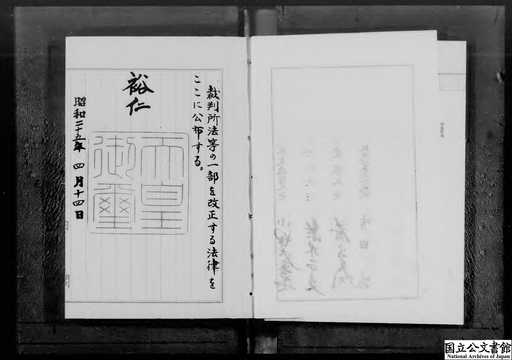 裁判所法等の一部を改正する法律を
ここに公布する。
裕仁
昭和二十五年 四月十四日
天皇
御璽
国立公文書館
National Archives of Japan